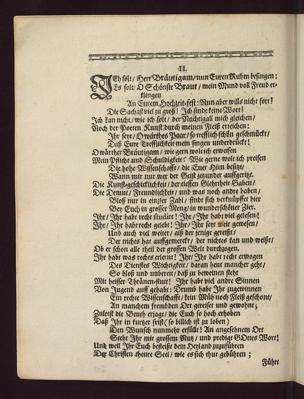 II.
ICh solt / Herr Bräutigam / nun Euren Ruhm besingen;
Es solt: O Schönste Braut / mein Mund voll Freud er-
klingen
An Eurem Hochzeit-fest: Nun aber wills nicht fort!
Die Sach ist viel zu groß! Ich finde keine Wort!
Ich kan nicht / wie ich solt / der Nachtigall mich gleichen /
Noch der Poeten Kunst durch meinen Fleiß erreichen:
Ihr seyt / O wärthes Paar / so trefflich schön geschmückt /
Daß Eure Trefflichkeit mein singen unterdrückt!
O wärther Bräutigam / wie gern wolt ich erweisen
Mein Pflicht und Schuldigkeit! Wie gerne wolt ich preisen
Die hohe Wissenschafft / die Euer Hirn besitzt /
Wann mir nur wer der Geist gesunder auffgeritzt.
Die Kunstgeschicklichkeit / der tieffen Glehrtheit Gaben /
Die Demut / Freundlichkeit / und was noch andre haben /
Bloß nur in einzler Zahl / findt sich verknüpffet hier
Bey Euch in grosser Meng / in wunderschöner Zier.
Ihr / Ihr habt recht studirt! Ihr / Ihr habt viel gelesen!
Ihr / Ihr habt recht gelebt! Ihr / Ihr seyt wär gewesen /
Und auch viel weiter / als der jenige gereißt /
Der nichts hat auffgemerckt / der nichts kan und weißt /
Ob er schon alle theil der grossen Welt durchgangen.
Ihr habt was rechts erlernt! Ihr / Ihr habt recht erwogen
Des Dienstes Wichtigkeit / daran heut mancher geht /
So bloß und unbereit / daß zu beweinen steht
Mit heisser Thränen-flut! Ihr habt viel andre Sinnen
Von Jugend auff gehabt: Drumb habt Ihr zugewinnen
Ein rechte Wissenschafft / kein Müh noch Fleiß geschont /
An manchem frembden Ort gereiset und gewohnt;
Zuletst die Beruff erjagt / die Euch so hoch erhoben
Daß Ihr in kurtzer frist (so billich ist zu loben)
Den Wunsch nunmehr erfüllt! An angesehnem Ort
Steht Ihr mit grossem Nutz / und predigt GOttes Wort!
Und weil Ihr Euch befleißt dem Heyland zuzuführen
Der Christen theure Seel / wie es sich thut gebühren;
Führt